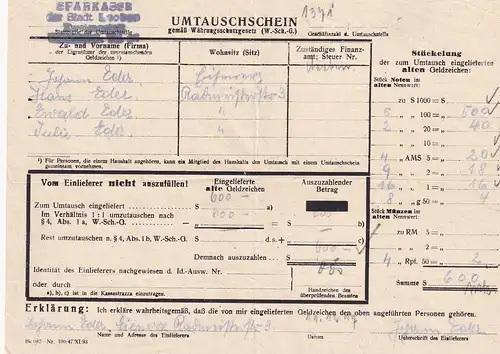 SPARKASSE
der Stadt Leoben
UMTAUSCHSCHEIN
1371
gemäß Währungsschutzgesetz (W.-Sch.-G.)
Geschäftszahl d. Umtauschstelle
Zu- und Vorname (Firma)
der Eigentümer der umzutauschenden
Geldzeichen ¹)
Wohnsitz (Sitz)
Zuständiges Finanz-
amt; Steuer Nr.
Johann Eder
Hans Eder
Ewald Eder
Julie Eder
¹) Für Personen, die einem Haushalt angehören, kann ein Mitglied des Haushalts den Umtausch mit einem Umtauschschein
gemeinsam vornehmen.
Stückelung
der zum Umtausch eingelieferten
alten Geldzeichen:
Stück Noten im
alten Nennwert:
zu S 1000 = S
5 „ „ 100 = „ 500
2 „ „ 20 = „ 40
4 „ AMS 5 = „ 20
9 „ „ 2 = „ 18
16 „ „ 1 = „ 16
8 „ g 50 = „ 4
Stück Münzen im
alten Nennwert:
zu RM 5 = „
„ „ 2 = „
4 „ Rpf. 50 = „ 2
Summe S 600
Vom Einlieferer nicht auszufüllen!
Eingelieferte
alte Geldzeichen
Auszuzahlender
Betrag
Zum Umtausch eingeliefert S 600 a)
Im Verhältnis 1 : 1 umzutauschen nach
§ 4, Abs. 1 a, W.-Sch.-G. — S 600 = S b)
Rest umzutauschen n. § 4, Abs. 1 b, W.-Sch.-G. S d. s. + S c)
Demnach auszuzahlen S 600
Identität des Einlieferers nachgewiesen d. Id.-Ausw. Nr.
a), b), c) ist in die Kassastrazza einzutragen.
Handzeichen des
überprüfenden Beamten
Erklärung: Ich erkläre wahrheitsgemäß, daß die von mir eingelieferten Geldzeichen den oben angeführten Personen gehören.
Johann Eder
Name und Adresse des Einlieferers
Datum
Johann Eder
Unterschrift des Einlieferers